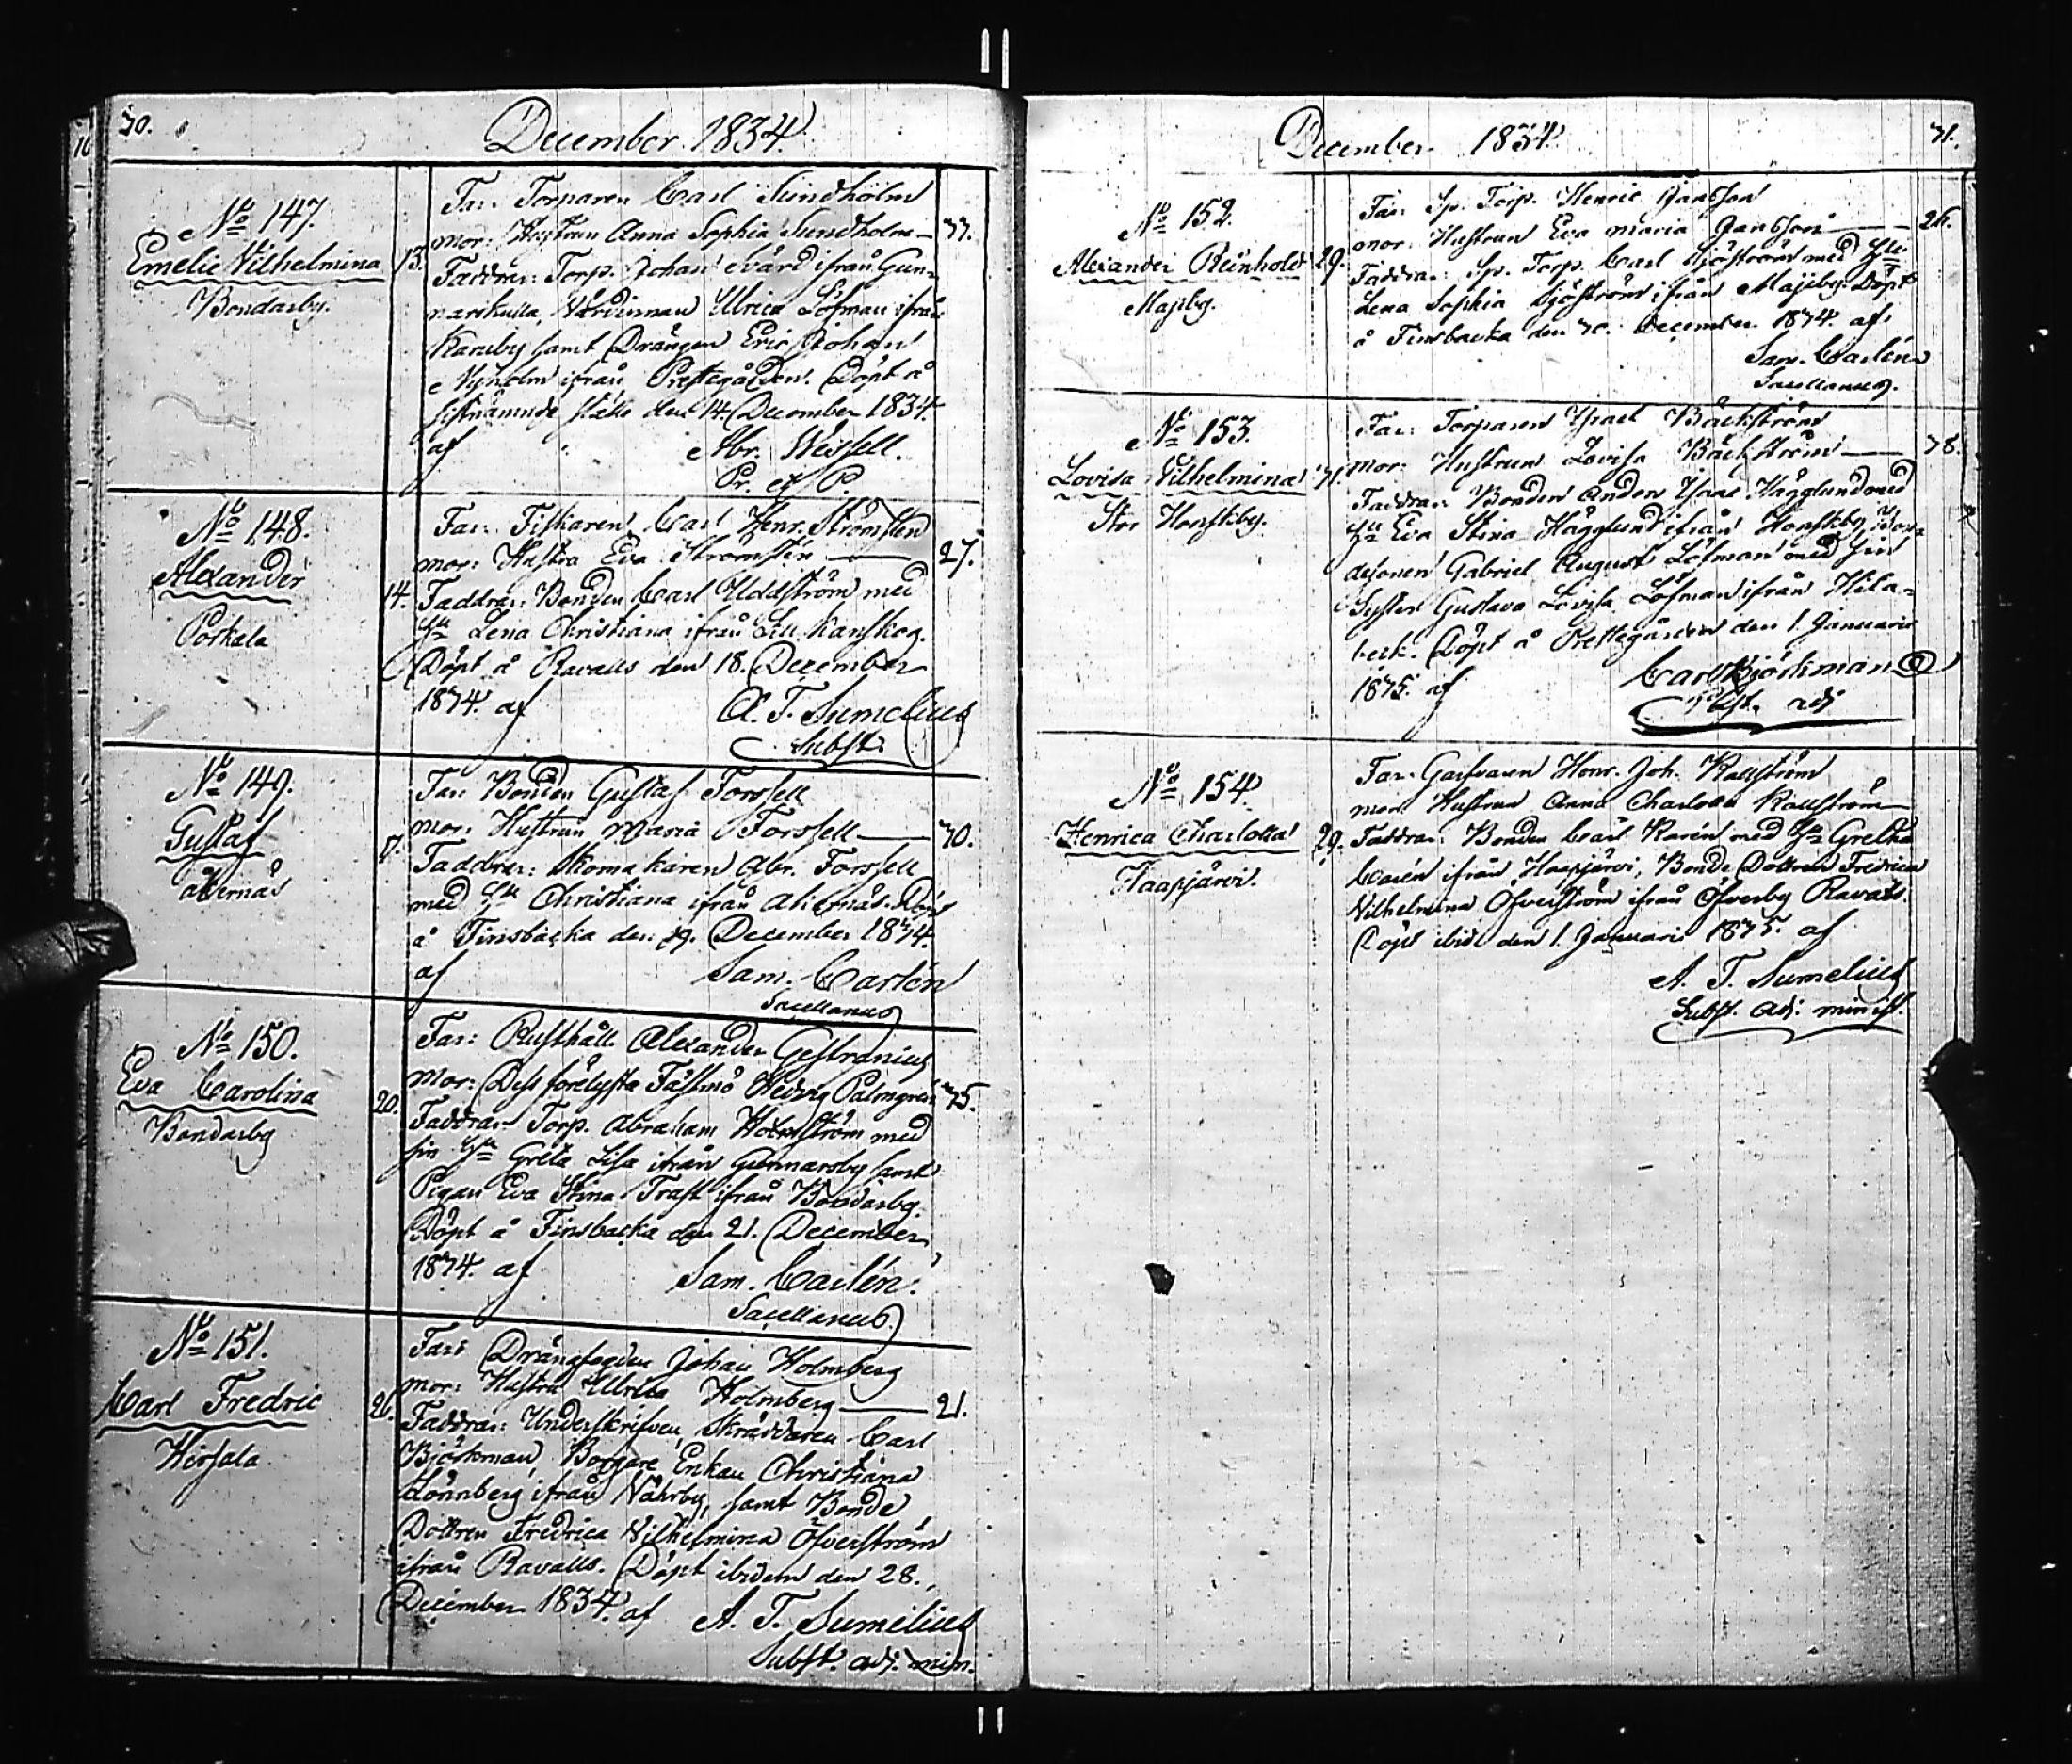 30.
December 1834.
No 147.
Emelie Vilhelmina
Bondarby.
13.
Far: Torparen Carl Sundholm
mor: Hustrun Anna Sophia Sundholm — 33.
Faddrar: Torp. Johan Svärd ifrån Gun-
narskulla, Värdinnan Ulrica Löfman ifrån
Karuby samt Drängen Eric Johan
Nyholm ifrån Prestegården. Döpt å
sistnämnde ställe den 14. December 1834.
af Abr. Wessell.
Pr. et P.
No 148.
Alexander
Porkala
14.
Far: Fiskaren Carl Henr. Strömsten
mor: Hustru Eva Strömsten — 27.
Faddrar: Bonden Carl Uddström med
Hu Lena Christiana ifrån Lill Kanskog.
Döpt å Ravalls den 18. December
1834. af A. T. Sumelius
Subst.
No 149.
Gustaf
Far: Bonden Gustaf Forssell
mor: Hustrun Maria Forssell — 30.
Faddrar: Skomakaren Abr. Forssell
med Hu Christiana ifrån Åkernäs. Döpt
å Finsbacka den 19. December 1834.
af Sam. Carlén
Sacellanus
No 150.
Eva Carolina
Bondarby
20.
Far: Rusthåll. Alexander Gestranius
Mor: Dess förelysta Fästmö Hedvig Palmgren 35.
Faddrar: Torp. Abraham Holmström med
sin Hu Greta Lisa ifrån Gunnarsby samt
Pigan Eva Stina Trast ifrån Bondarby.
Döpt å Finsbacka den 21. December
1834. af Sam. Carlén.
Sacellanus.
No 151.
Carl Fredric
Hirsala
26.
Far: Drängfogden Johan Holmberg
mor: Hustru Ulrica Holmberg — 21.
Faddrar: Underskrifven, Skräddaren Carl
Björkman, Borgare Enkan Christiana
Lönnberg ifrån Vährby, samt Bonde
Dottren Fredrica Vilhelmina Öfverström
ifrån Ravalls. Döpt ibidem den 28.
December 1834. af A. T. Sumelius
Subst. adj. min.
December 1834.
31.
No 152.
Alexander Reinhold
Majby.
29.
Far: Sp. Torp. Henric Jansson
mor: Hustrun Eva Maria Jansson — 26.
Faddrar: Sp. Torp. Carl Sjöström med Hu
Lena Sophia Sjöström ifrån Majby. Döpt
å Finsbacka den 30. December 1834. af
Sam. Carlén
Sacellanus.
No 153.
Lovisa Vilhelmina
Stor Honskby.
31.
Far: Torparen Israel Bäckström
mor: Hustrun Lovisa Bäckström — 38.
Faddrar: Bonden Anders Isaac Hägglund med
Hu Eva Stina Hägglund ifrån Honskby,
Gabriel August Löfman med sin
Syster Gustava Lovisa Löfman ifrån Hila-
beck. Döpt å Prestegården den 1 Januarii
1835. af Carl Björkman
Past. adj
No 154.
Henrica Charlotta
Haapjärvi.
29.
Far: Garfvaren Henr. Joh. Kallström
mor: Hustrun Anna Charlotta Kallström
Faddrar: Bonden Carl Karén med Hu Gretha
Carén ifrån Haapjärvi, Bonde Dottren Fredrica
Vilhelmina Öfverström ifrån Öfverby Ravals.
Döpt ibid. den 1. Januarii 1835. af
A. T. Sumelius
Subst. adj. minist.